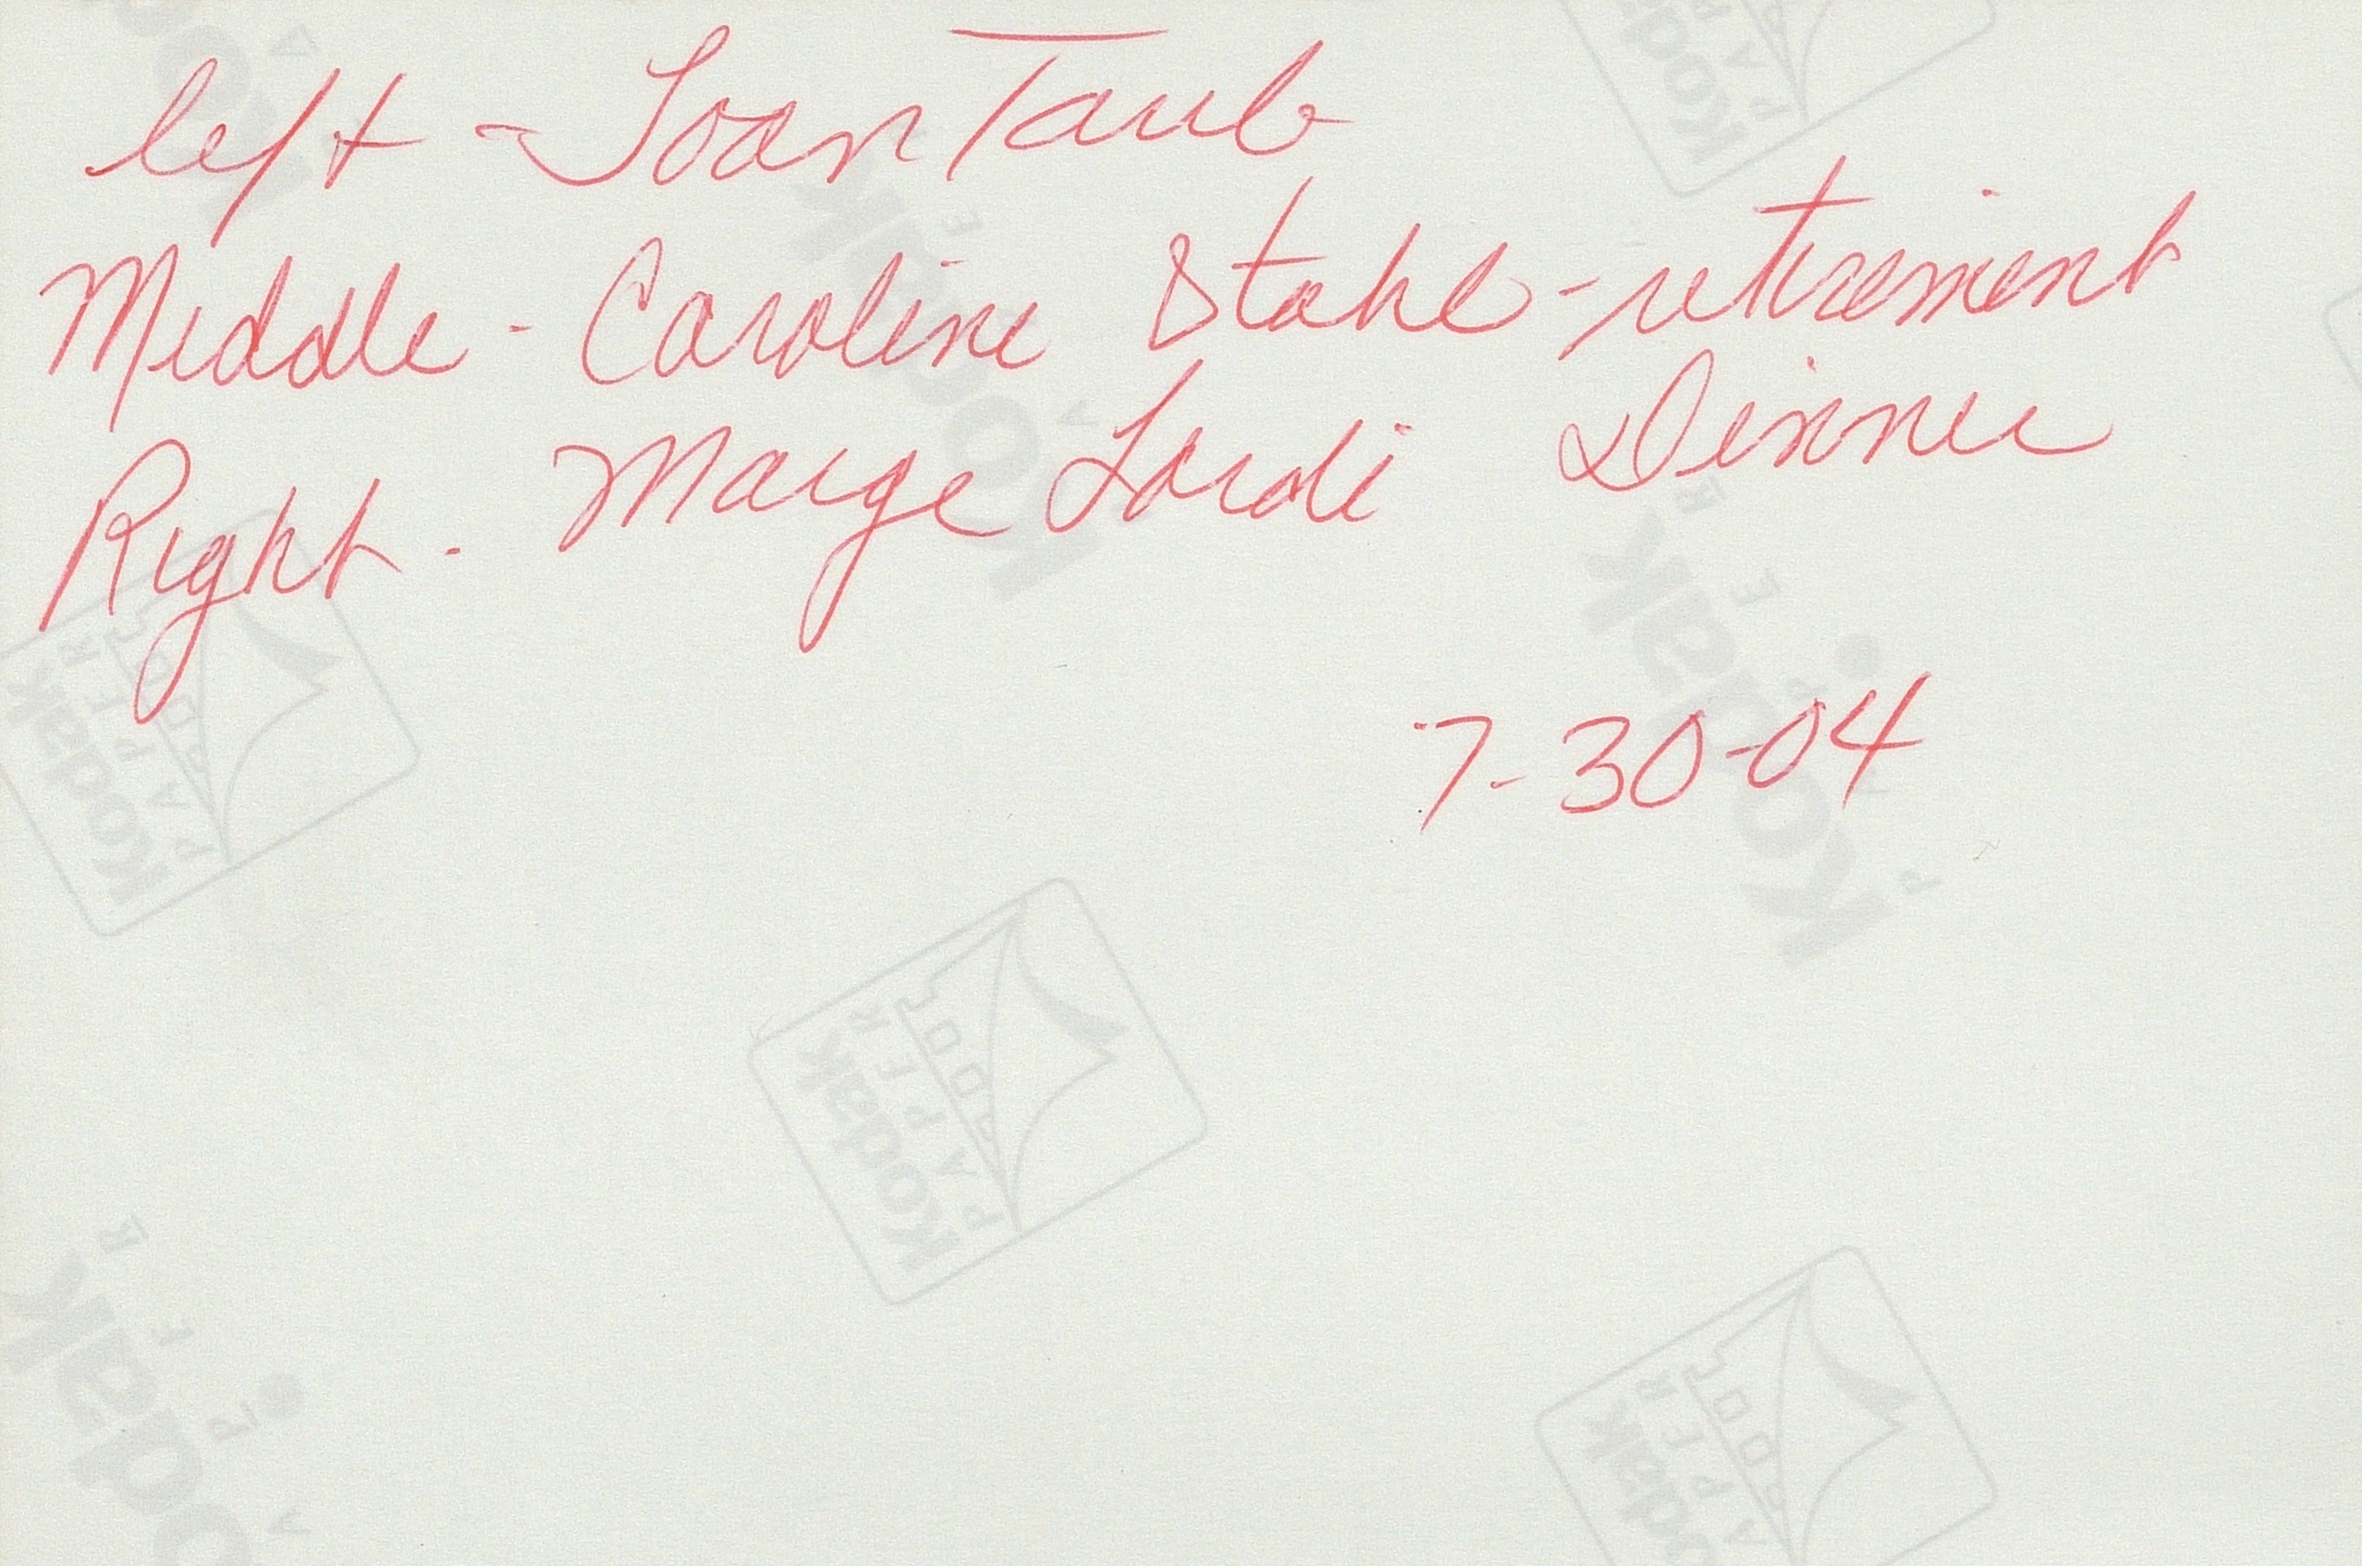 left - Joan Taub
Middle - Caroline Stahl - retirement
Right - Marge Lordi Dinner
7-30-04
Kodak
PAPER
Kodak
PAPER
Kodak
PAPER
Kodak
PAPER
Kodak
Kodak